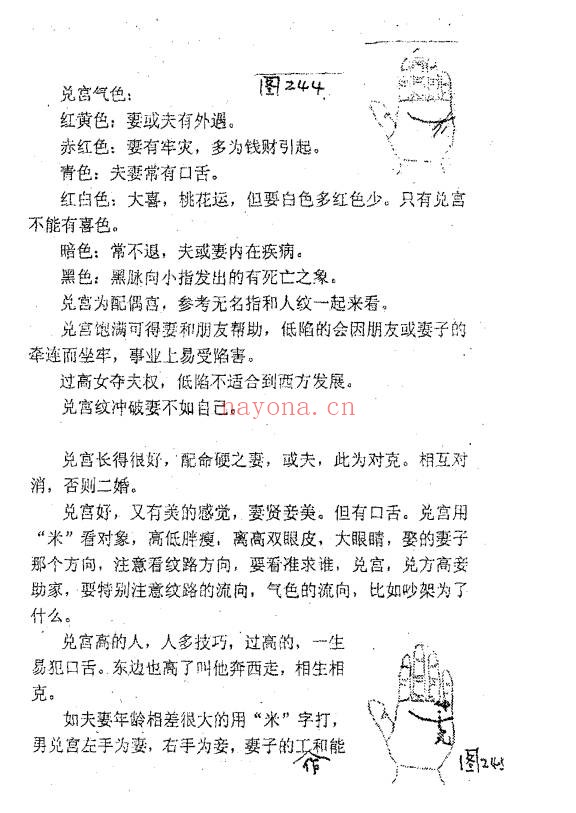 图244
兑宫气色：
红黄色：妻或夫有外遇。
赤红色：妻有牢灾，多为钱财引起。
青色：夫妻常有口舌。
红白色：大喜，桃花运，但要白色多红色少。只有兑宫
不能有喜色。
暗色：常不退，夫或妻内在疾病。
黑色：黑脉向小指发出的有死亡之象。
兑宫为配偶宫，参考无名指和人纹一起来看。
兑宫饱满可得妻和朋友帮助，低陷的会因朋友或妻子的
牵连而坐牢，事业上易受陷害。
过高女夺夫权，低陷不适合到西方发展。
兑宫纹冲破妻不如自己。
nayona.cn
兑宫长得很好，配命硬之妻，或夫，此为对克。相互对
消，否则二婚。
兑宫好，又有美的感觉，妻贤妾美。但有口舌。兑宫用
“米”看对象，高低胖瘦，离高双眼皮，大眼睛，娶的妻子
那个方向，注意看纹路方向，要看准求谁，兑宫，兑方高妾
助家，要特别注意纹路的流向，气色的流向，比如吵架为了
什么。
兑宫高的人，人多技巧，过高的，一生
易犯口舌。东边也高了叫他奔西走，相生相
克。
如夫妻年龄相差很大的用“米”字打，
男兑宫左手为妻，右手为妾，妻子的工和能
作
图245